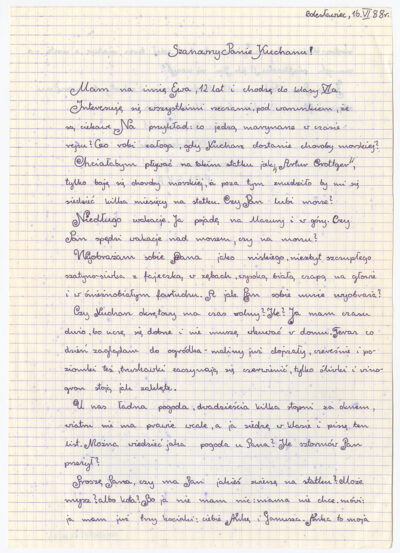 Bolesławiec, 16.VI 88r.
Szanowny Panie Kucharzu!
Mam na imię Ewa, 12 lat i chodzę do klasy VIa.
Interesuję się wszystkimi rzeczami, pod warunkiem, że
są ciekawe. Na przykład: co jedzą marynarze w czasie
rejsu? Co robi załoga, gdy Kucharz dostanie choroby morskiej?
Chciałabym pływać na takim statku jak „Artur Grottger”,
tylko boję się choroby morskiej, a poza tym znudziło by mi się
siedzieć kilka miesięcy na statku. Czy Pan lubi morze?
Niedługo wakacje. Ja pojadę na Mazury i w góry. Czy
Pan spędzi wakacje nad morzem, czy na morzu?
Wyobrażam sobie Pana jako niskiego, niezbyt szczupłego
szatyna-siwka z fajeczką w zębach, wysoką białą czapą na głowie
i w śnieżnobiałym fartuchu. A jak Pan sobie mnie wyobraża?
Czy Kucharz okrętowy ma czas wolny? Ile? Ja mam czasu
dużo, bo uczę się dobrze i nie muszę wkuwać w domu. Teraz co
dzień zaglądam do ogródka - maliny już dojrzały, czereśnie i po-
ziomki też, truskawki zaczynają się czerwienić, tylko śliwki i wino-
gron stoją jak zaklęte.
U nas ładna pogoda, dwadzieścia kilka stopni za oknem,
wiatru nie ma prawie wcale, a ja siedzę w klasie i piszę ten
list. Można wiedzieć jaka pogoda u Pana? Ile sztormów Pan
przeżył?
Proszę Pana, czy ma Pan jakieś zwierzę na statku? Może
mysz? albo kota? Bo ja nie mam nic: mama nie chce, mówi:
ja mam już trzy kociaki: ciebie Ankę i Janusza. Anka to moja